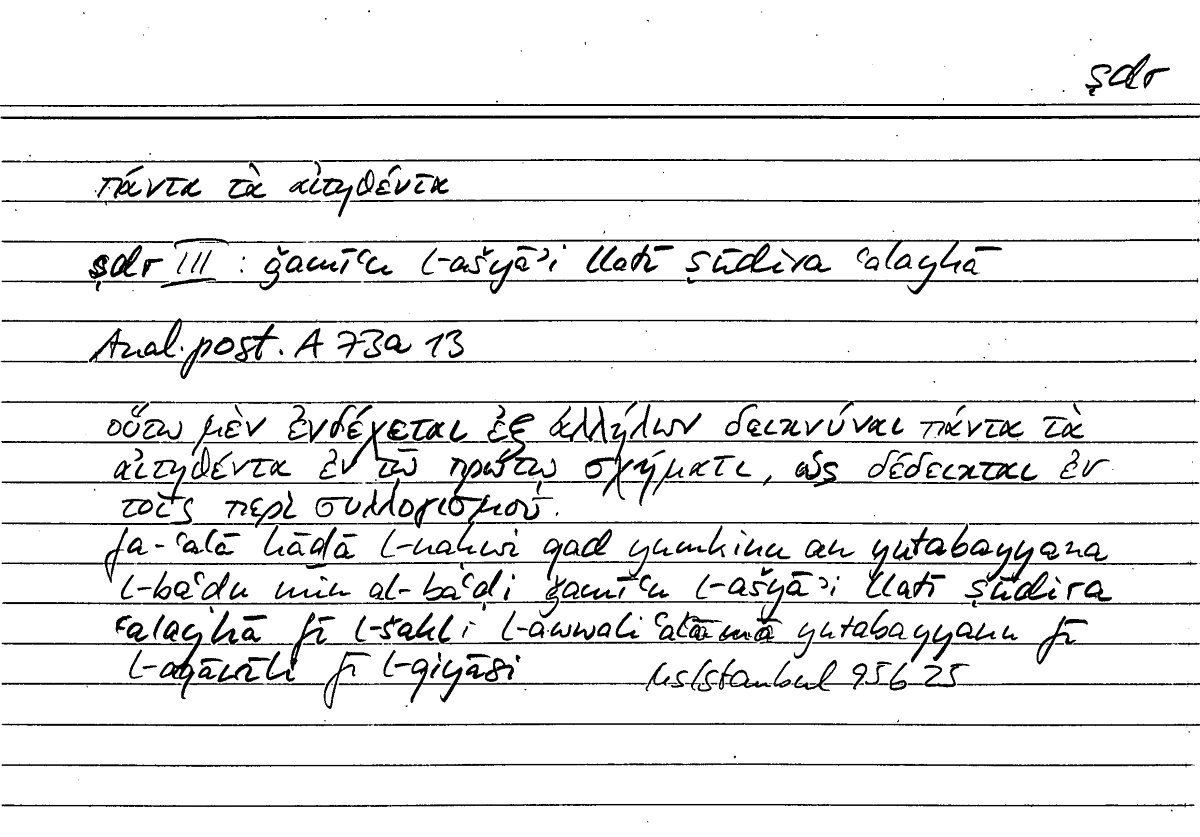 ṣdr
πάντα τὰ αἰτηθέντα
ṣdr III : ǧamīʿu l-ašyāʾi llatī ṣūdira ʿalayhā
Anal. post. A 73a 13
οὕτω μὲν ἐνδέχεται ἐξ ἀλλήλων δεικνύναι πάντα τὰ
αἰτηθέντα ἐν τῷ πρώτῳ σχήματι, ὡς δέδεικται ἐν
τοῖς περὶ συλλογισμοῦ.
fa-ʿalā hāḏā l-naḥwi qad yumkinu an yutabayyana
l-baʿḍu min al-baʿḍi ǧamīʿu l-ašyāʾi llatī ṣūdira
ʿalayhā fī l-šakli l-awwali ʿalā mā yutabayyanu fī
l-aqāwīli fī l-qiyāsi Ms Istanbul 95b 25